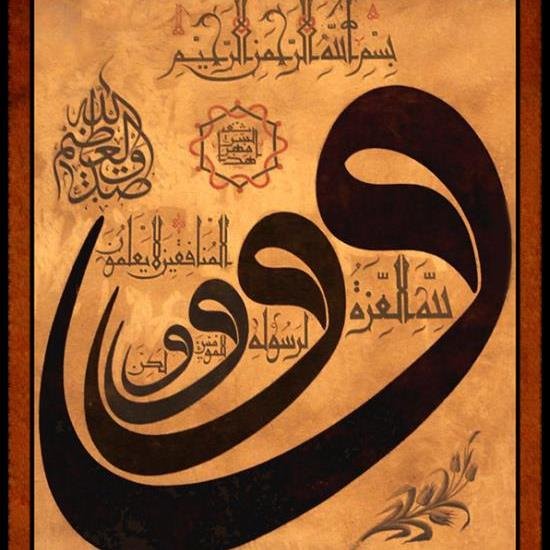 بِسْمِ اللَّهِ الرَّحْمَنِ الرَّحِيمِ
وَلِلَّهِ الْعِزَّةُ
وَلِرَسُولِهِ
وَلِلْمُؤْمِنِينَ
وَلَكِنَّ
الْمُنَافِقِينَ لَا يَعْلَمُونَ
صدق الله العظيم